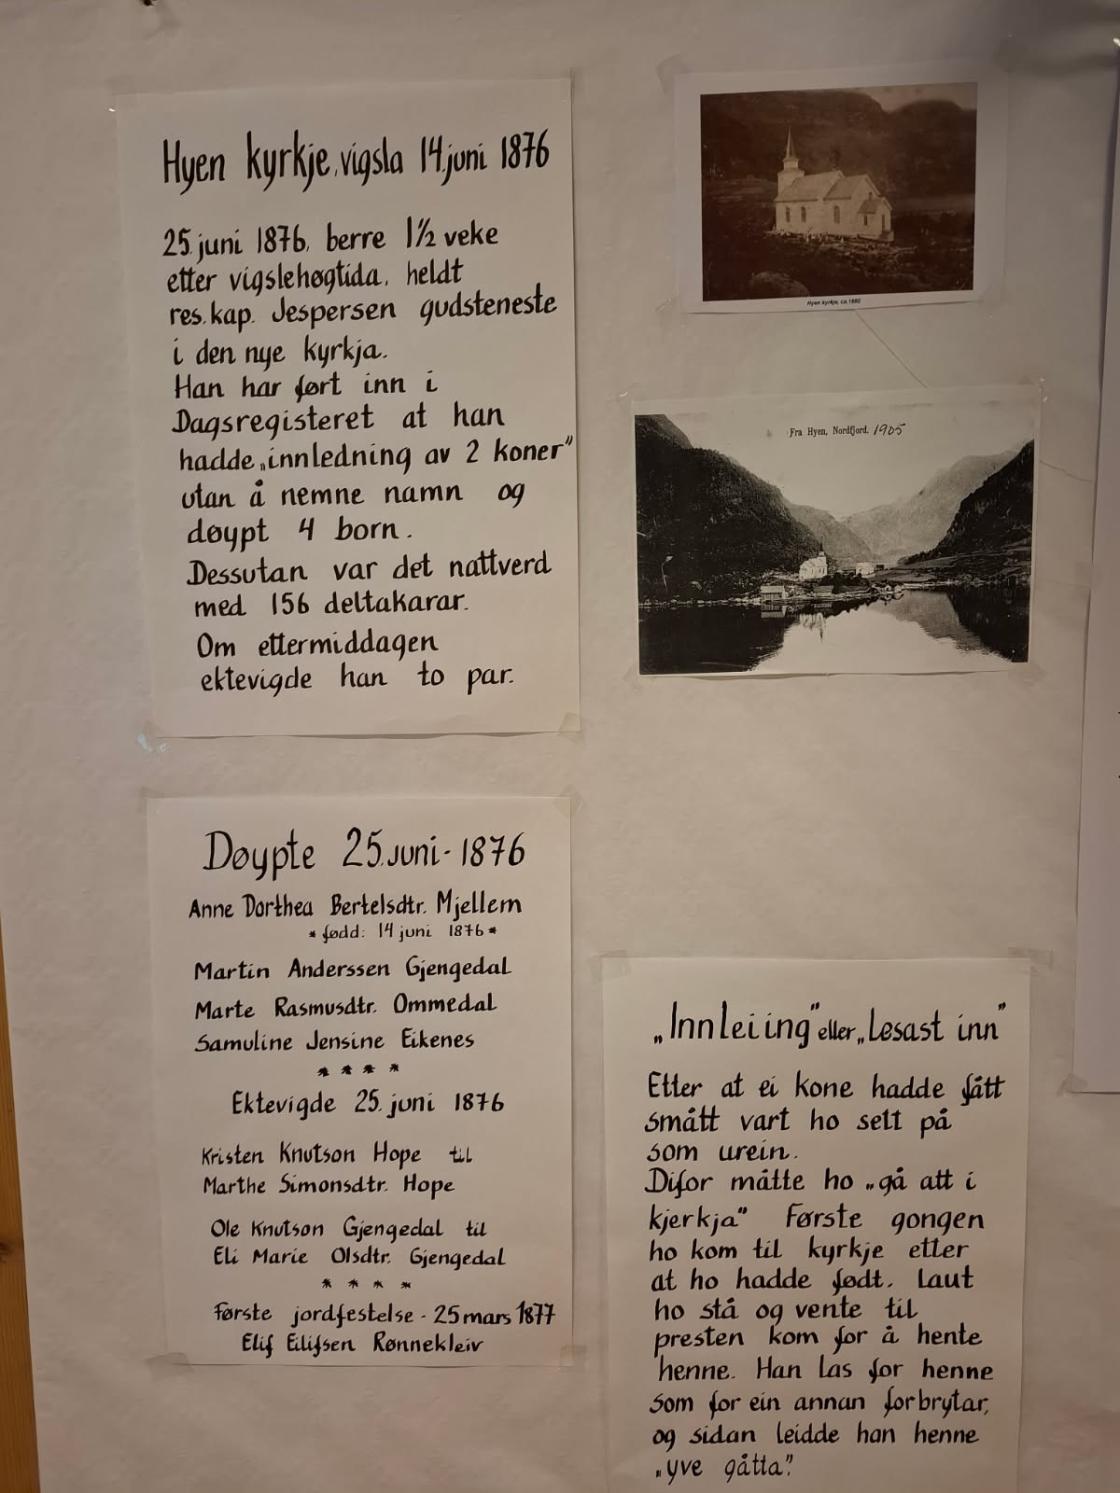 Hyen kyrkje, vigsla 14. juni 1876
25. juni 1876, berre 1½ veke
etter vigslehøgtida, heldt
res. kap. Jespersen gudsteneste
i den nye kyrkja.
Han har ført inn i
Dagsregisteret at han
hadde „innledning av 2 koner"
utan å nemne namn og
døypt 4 born.
Dessutan var det nattverd
med 156 deltakarar.
Om ettermiddagen
ektevigde han to par.
Hyen kyrkje, ca.1880
Fra Hyen, Nordfjord. 1905
Døypte 25. juni - 1876
Anne Dorthea Bertelsdtr. Mjellem
* fødd: 14 juni 1876 *
Martin Anderssen Gjengedal
Marte Rasmusdtr. Ommedal
Samuline Jensine Eikenes
* * * *
Ektevigde 25. juni 1876
Kristen Knutson Hope til
Marthe Simonsdtr. Hope
Ole Knutson Gjengedal til
Eli Marie Olsdtr. Gjengedal
* * * *
Første jordfestelse - 25 mars 1877
Elif Eilifsen Rønnekleiv
„Innleiing" eller „Lesast inn"
Etter at ei kone hadde fått
smått vart ho sett på
som urein.
Difor måtte ho „gå att i
kjerkja" Første gongen
ho kom til kyrkje etter
at ho hadde født. Laut
ho stå og vente til
presten kom for å hente
henne. Han las for henne
som for ein annan forbrytar,
og sidan leidde han henne
„yve gåtta".